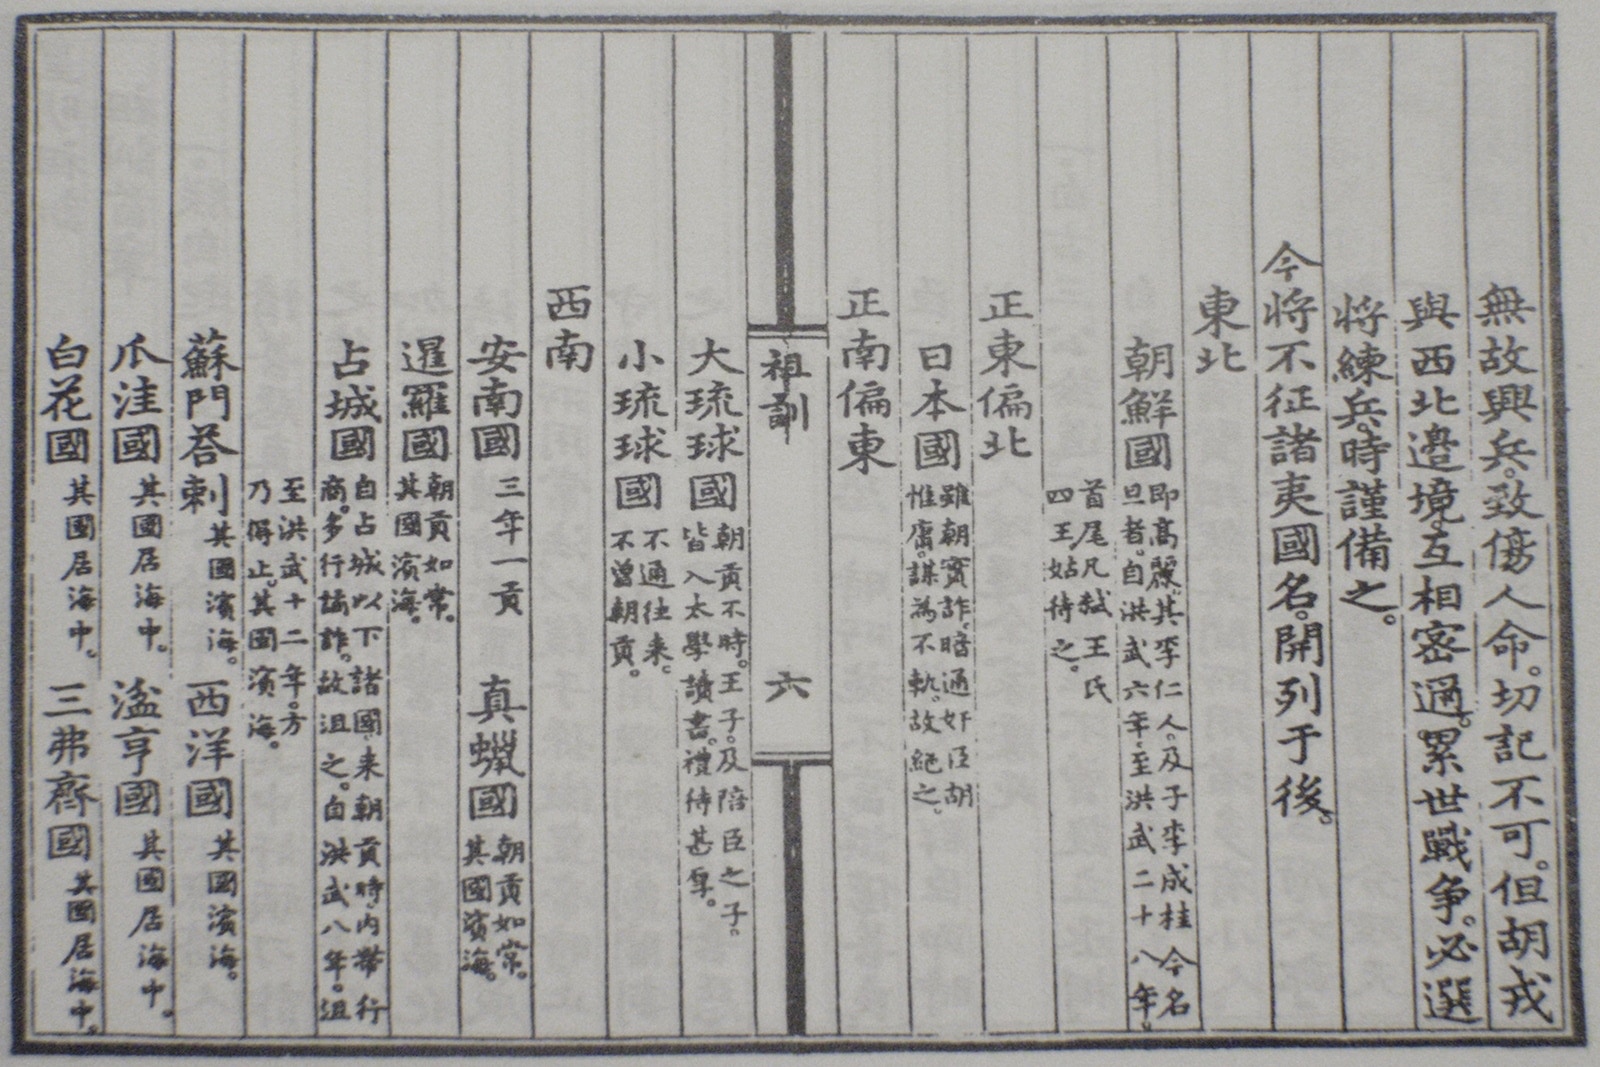 無故興兵。致傷人命。切記不可。但胡戎
與西北邊境。互相密邇。累世戰爭。必選
將練兵。時謹備之。
今將不征諸夷國名。開列于後。
東北
朝鮮國
即高麗。其李仁人。及子李成桂今名
旦者。自洪武六年至洪武二十八年。
首尾凡弑王氏
四王姑待之。
正東偏北
日本國
雖朝實詐。暗通奸臣胡
惟庸。謀為不軌。故絕之。
正南偏東
祖訓
六
大琉球國
朝貢不時。王子。及陪臣之子。
皆入太學讀書。禮待甚厚。
小琉球國
不通往来。
不曾朝貢。
西南
安南國
三年一貢
真蠟國
朝貢如常。
其國濱海。
暹羅國
朝貢如常。
其國濱海。
占城國
自占城以下諸國来朝貢時。内帶行
商。多行譎詐。故沮之。自洪武八年。沮
至洪武十二年。方
乃得止。其國濱海。
蘇門荅剌
其國濱海。
西洋國
其國濱海。
爪洼國
其國居海中。
湓亨國
其國居海中。
白花國
其國居海中。
三弗齊國
其國居海中。